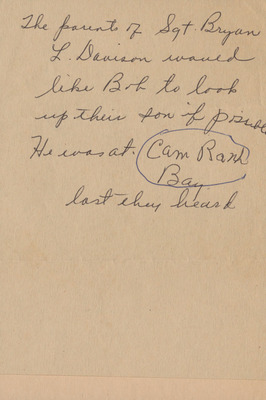 The parents of Sgt. Bryan
L. Davison would
like Bob to look
up their son if possible
He was at. Cam Ranh
Bay
last they heard